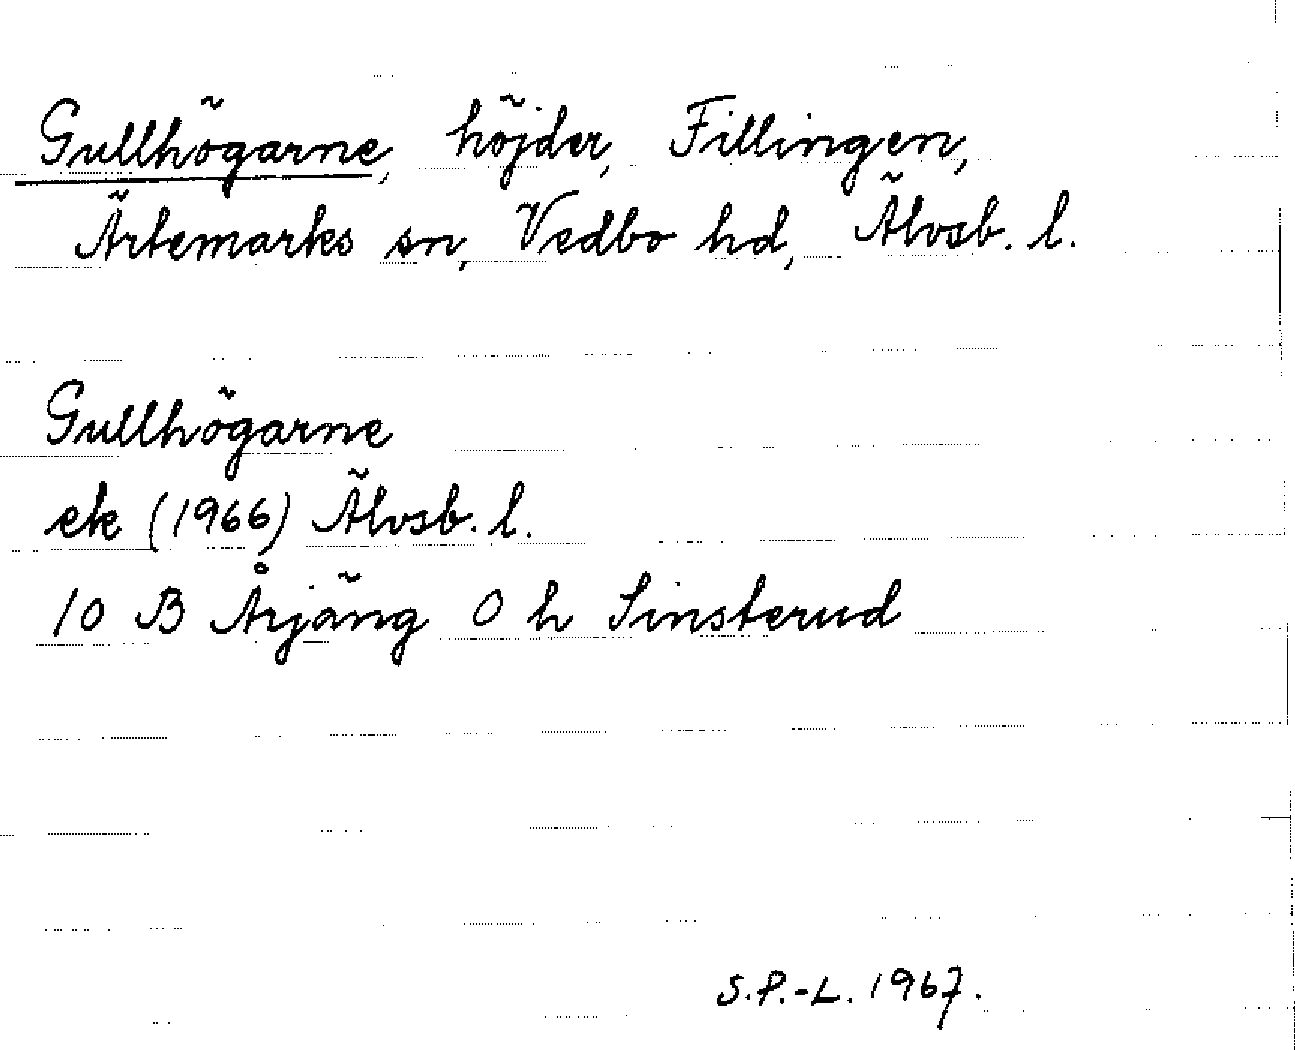 Gullhögarne, höjder, Fillingen,
Ärtemarks sn, Vedbo hd, Älvsb. l.
Gullhögarne
ek (1966) Älvsb. l.
10 B Årjäng 0 h Sinsterud
S.P.-L. 1967.